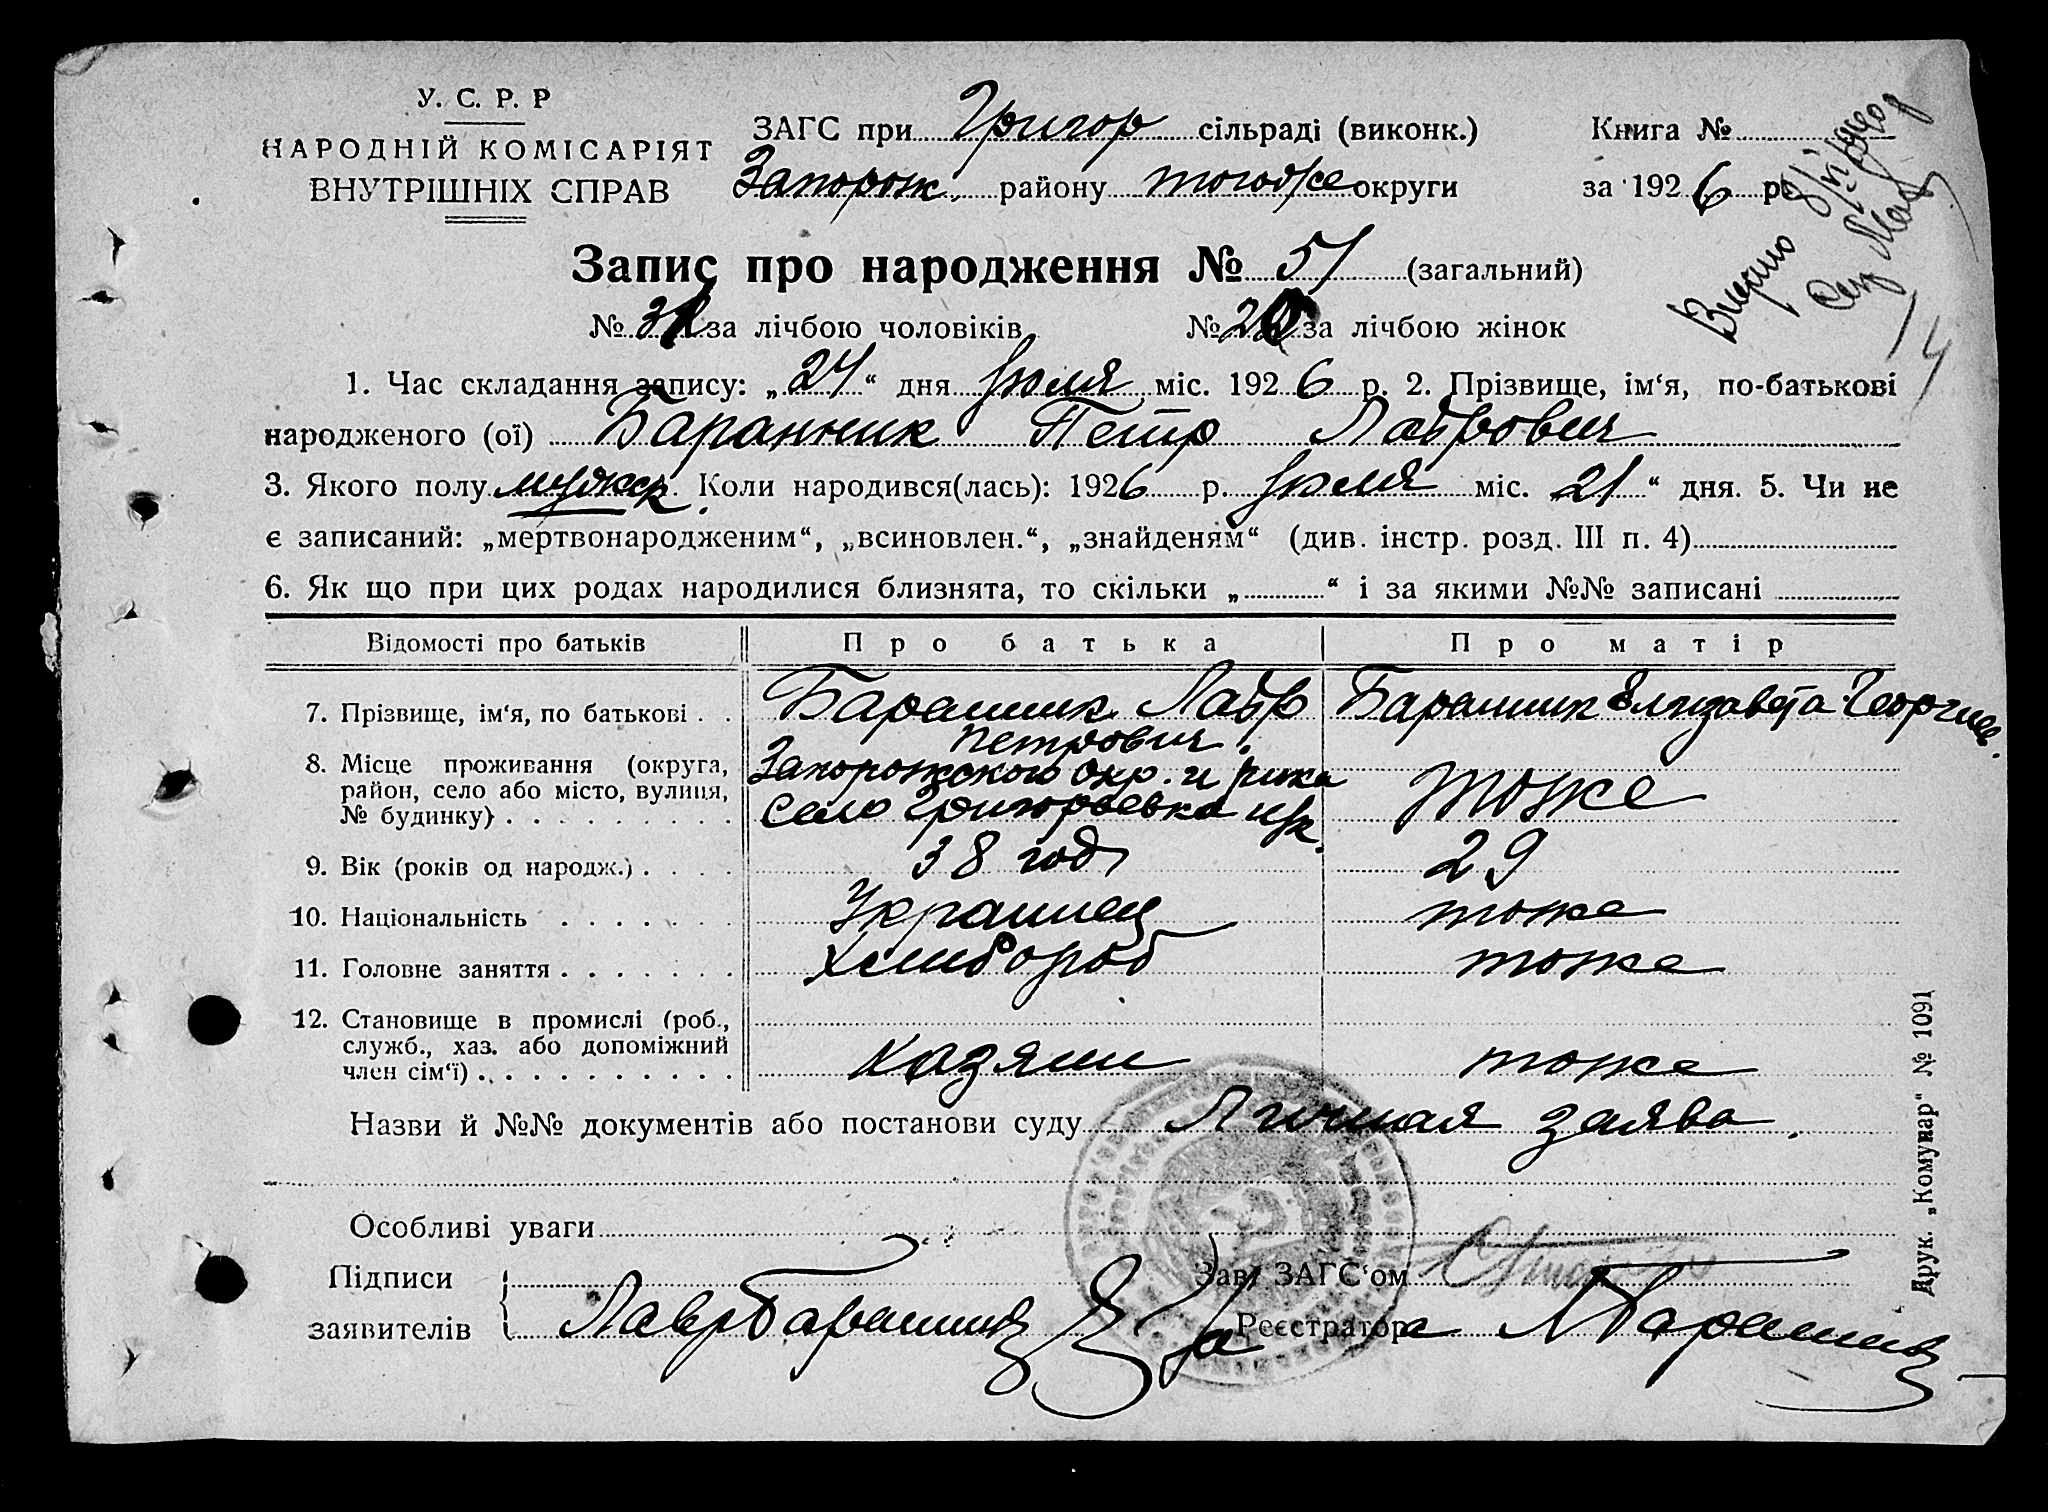 У. С. Р. Р
НАРОДНІЙ КОМІСАРІЯТ
ВНУТРІШНІХ СПРАВ
ЗАГС при Григор сільраді (виконк.)
Запорож. району тогодже округи
Книга №
за 1926 р.
Вверно
Запис про народження № 51 (загальний)
№ 31 за лічбою чоловіків № 20 за лічбою жінок
1. Час складання запису: „24“ дня июля міс. 1926 р. 2. Прізвище, ім‘я, по-батькові
народженого (ої) Баранник Петр Лаврович
3. Якого полу мужск. Коли народився(лась): 1926 р. июля міс. 21“ дня. 5. Чи не
є записаний: „мертвонародженим“, „всиновлен.“, „знайденям“ (див. інстр. розд. III п. 4)
6. Як що при цих родах народилися близнята, то скільки „ “ і за якими №№ записані
Відомості про батьків Про батька Про матір
7. Прізвище, ім‘я, по батькові . . Баранник Лавр Петрович. Баранник Елизавета Георгиев.
8. Місце проживання (округа, район, село або місто, вулиця, № будинку) . . . . . . . . .
Запорожского окр. и рика
село Григорьевка
тоже
9. Вік (років од народж.) . . . . 38 год 29
10. Національність . . . . . . . Украинец тоже
11. Головне заняття . . . . . . . Хлибороб тоже
12. Становище в промислі (роб., служб., хаз. або допоміжний член сім‘ї) . . . . . . . . . . хазяин тоже
Назви й №№ документів або постанови суду Личная заява.
Особливі уваги
Підписи
заявителів
Лавр Баранник
Зав. ЗАГС‘ом
За Реєстратора Л Баранник
Друк. „Комунар“ № 1091